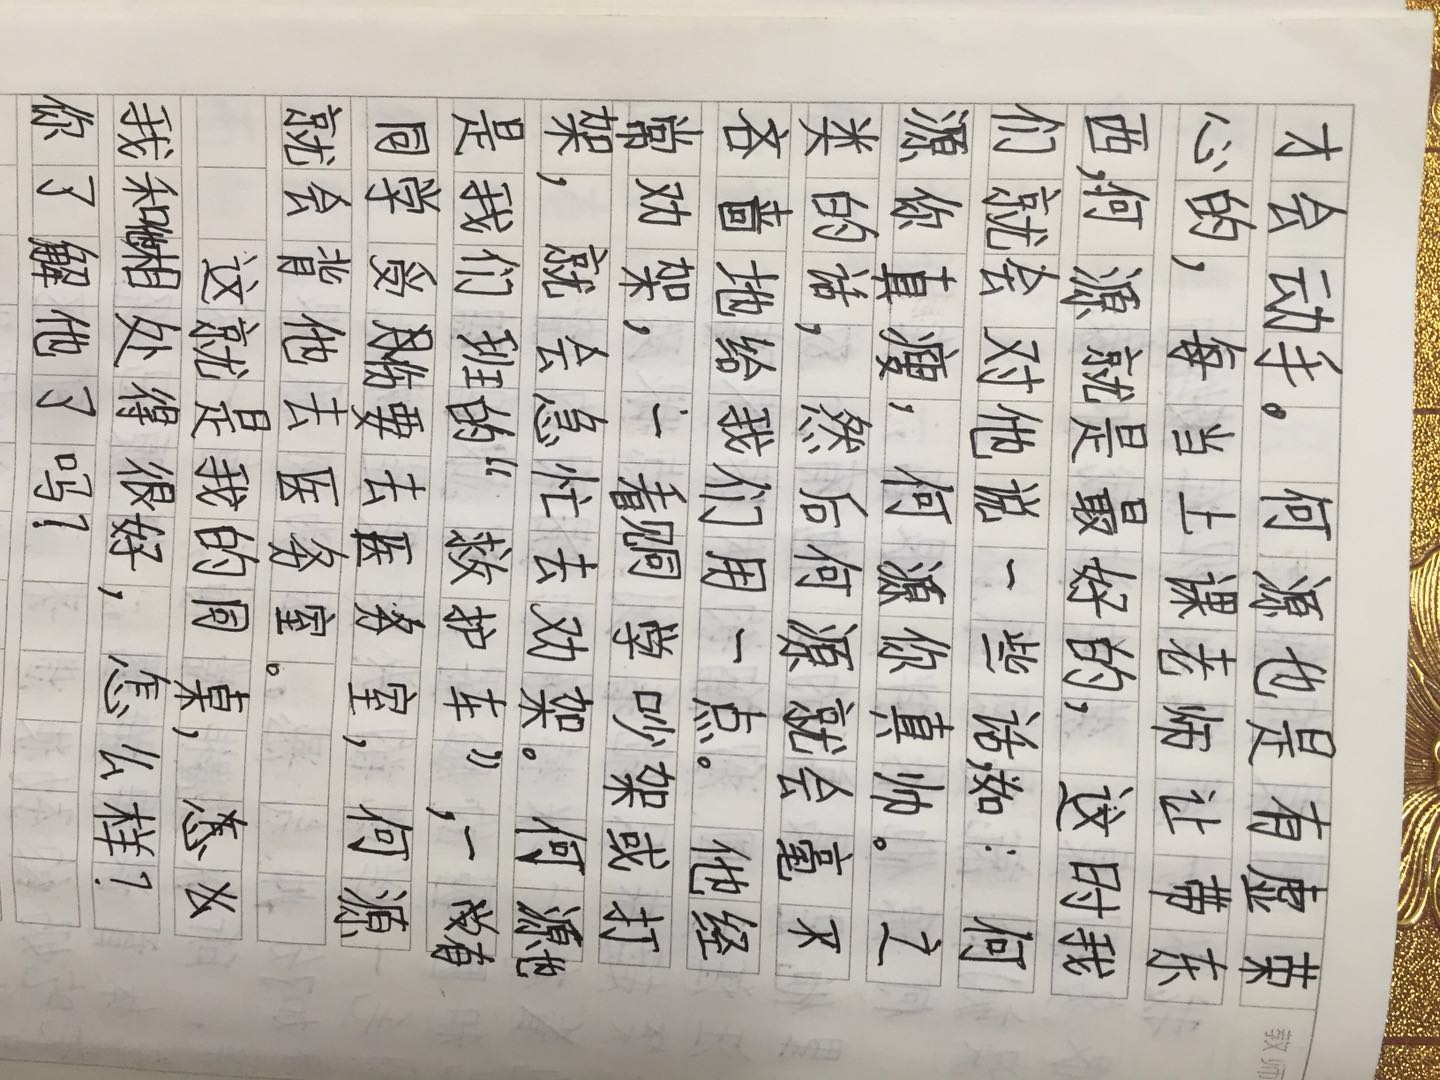 才会动手。何源也是有虚荣
心的，每当上课老师让带东
西,何源就是最好的，这时我
们就会对他说一些话,如：何
源你真瘦，何源你真帅。之
类的话，然后何源就会毫不
吝啬地给我们用一点。他经
常劝架，一看同学吵架或打
架，就会急忙去劝架。何源也
是我们班的“救护车”，一有
同学受伤要去医务室，何源
就会背他去医务室。
这就是我的同桌，怎么
我和她相处得很好，怎么样？
你了解他了吗？
教师